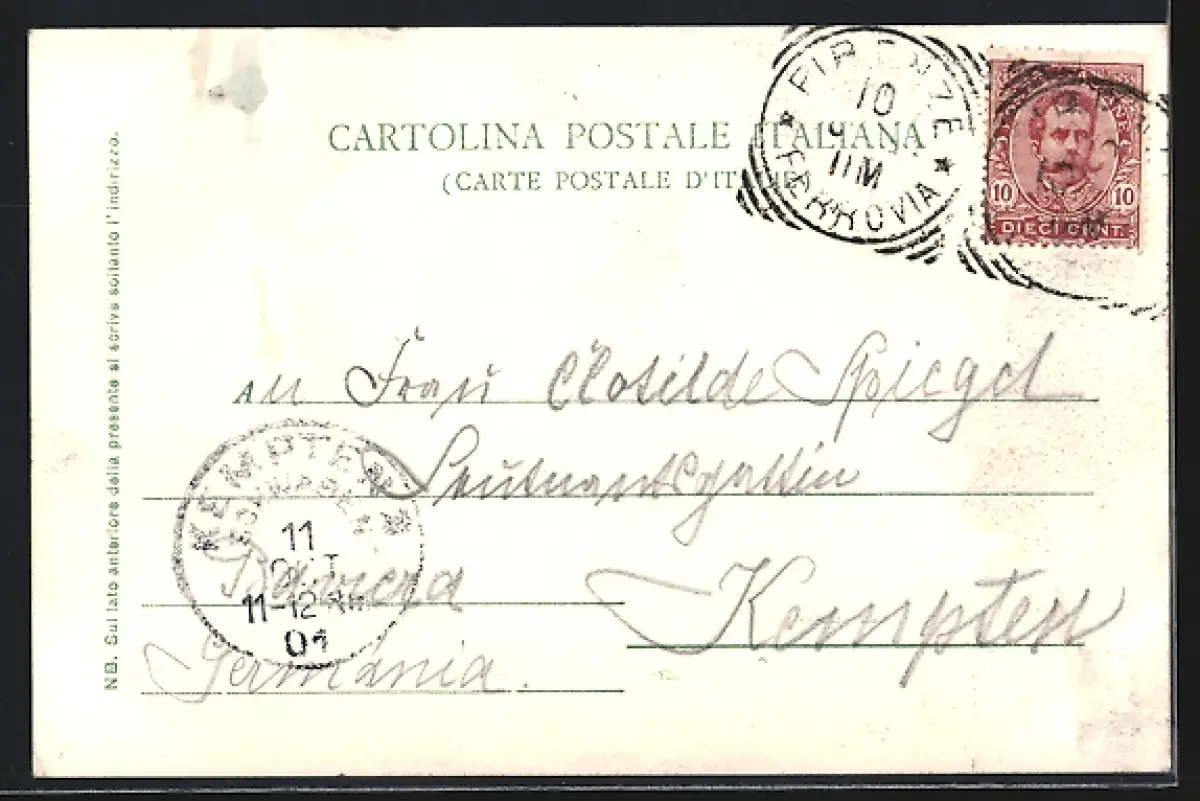 CARTOLINA POSTALE ITALIANA
(CARTE POSTALE D'ITALIE)
FIRENZE
10
11M
FERROVIA
10 10
DIECI CENT.
NB. Sul lato anteriore della presente si scrive soltanto l'indirizzo.
An Frau Clotilde Spiegel
Leutnantsgattin
Kempten
Baviera
Germánia.
KEMPTEN
SCHWABEN
11
OKT
11-12 Vm
01